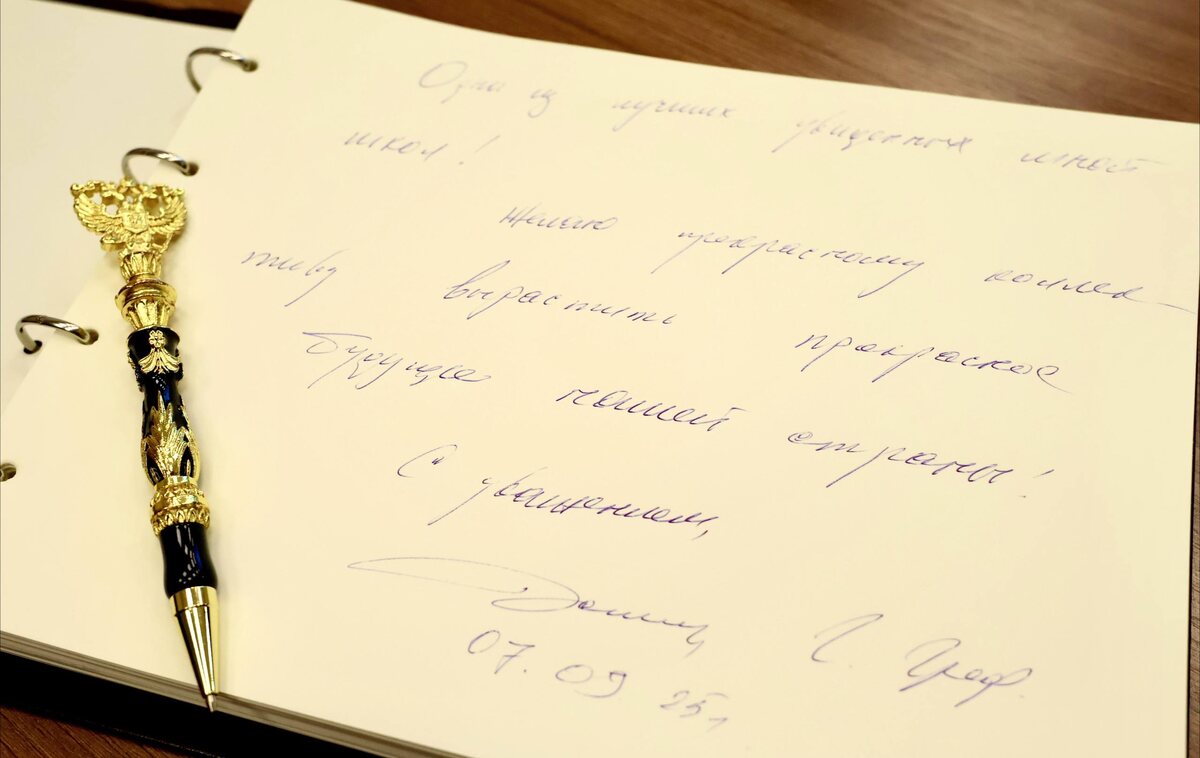 Одна из лучших увиденных мной
школ!
Желаю прекрасному коллек-
тиву вырастить прекрасное
будущее нашей страны!
С уважением,
Г. Греф
07.09 25г